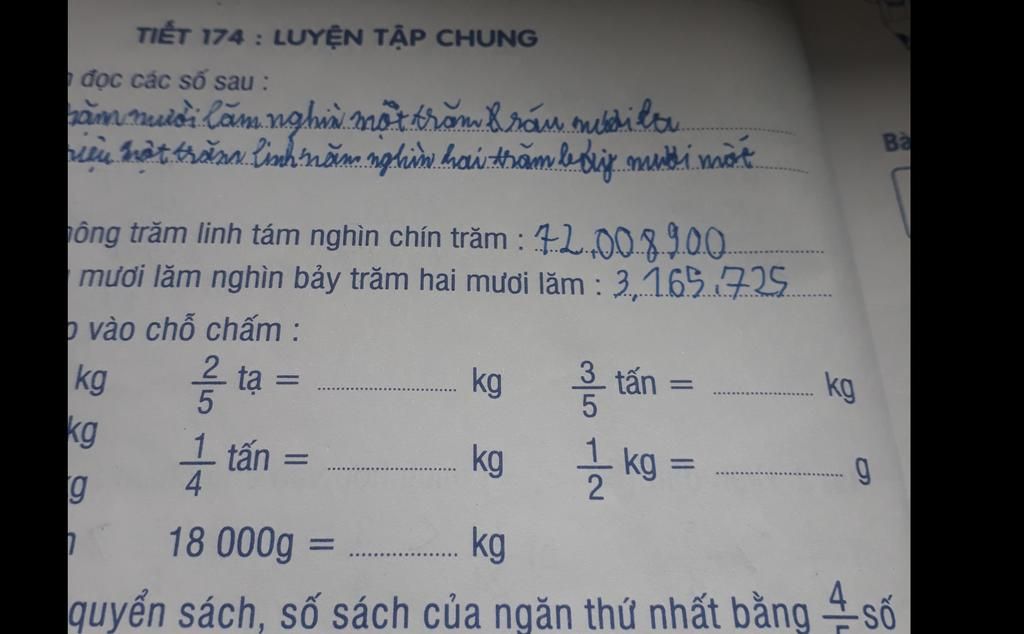 TIẾT 174 : LUYỆN TẬP CHUNG
đọc các số sau :
mười lăm nghìn một trăm sáu mươi
một trăm linh năm nghìn hai trăm mươi mốt
Bà
trăm linh tám nghìn chín trăm : 72.008900
mươi lăm nghìn bảy trăm hai mươi lăm : 3,165.725
vào chỗ chấm :
kg 2/5 tạ = kg 3/5 tấn = kg
kg 1/4 tấn = kg 1/2 kg = g
g
18 000g = kg
quyển sách, số sách của ngăn thứ nhất bằng 4/5 số